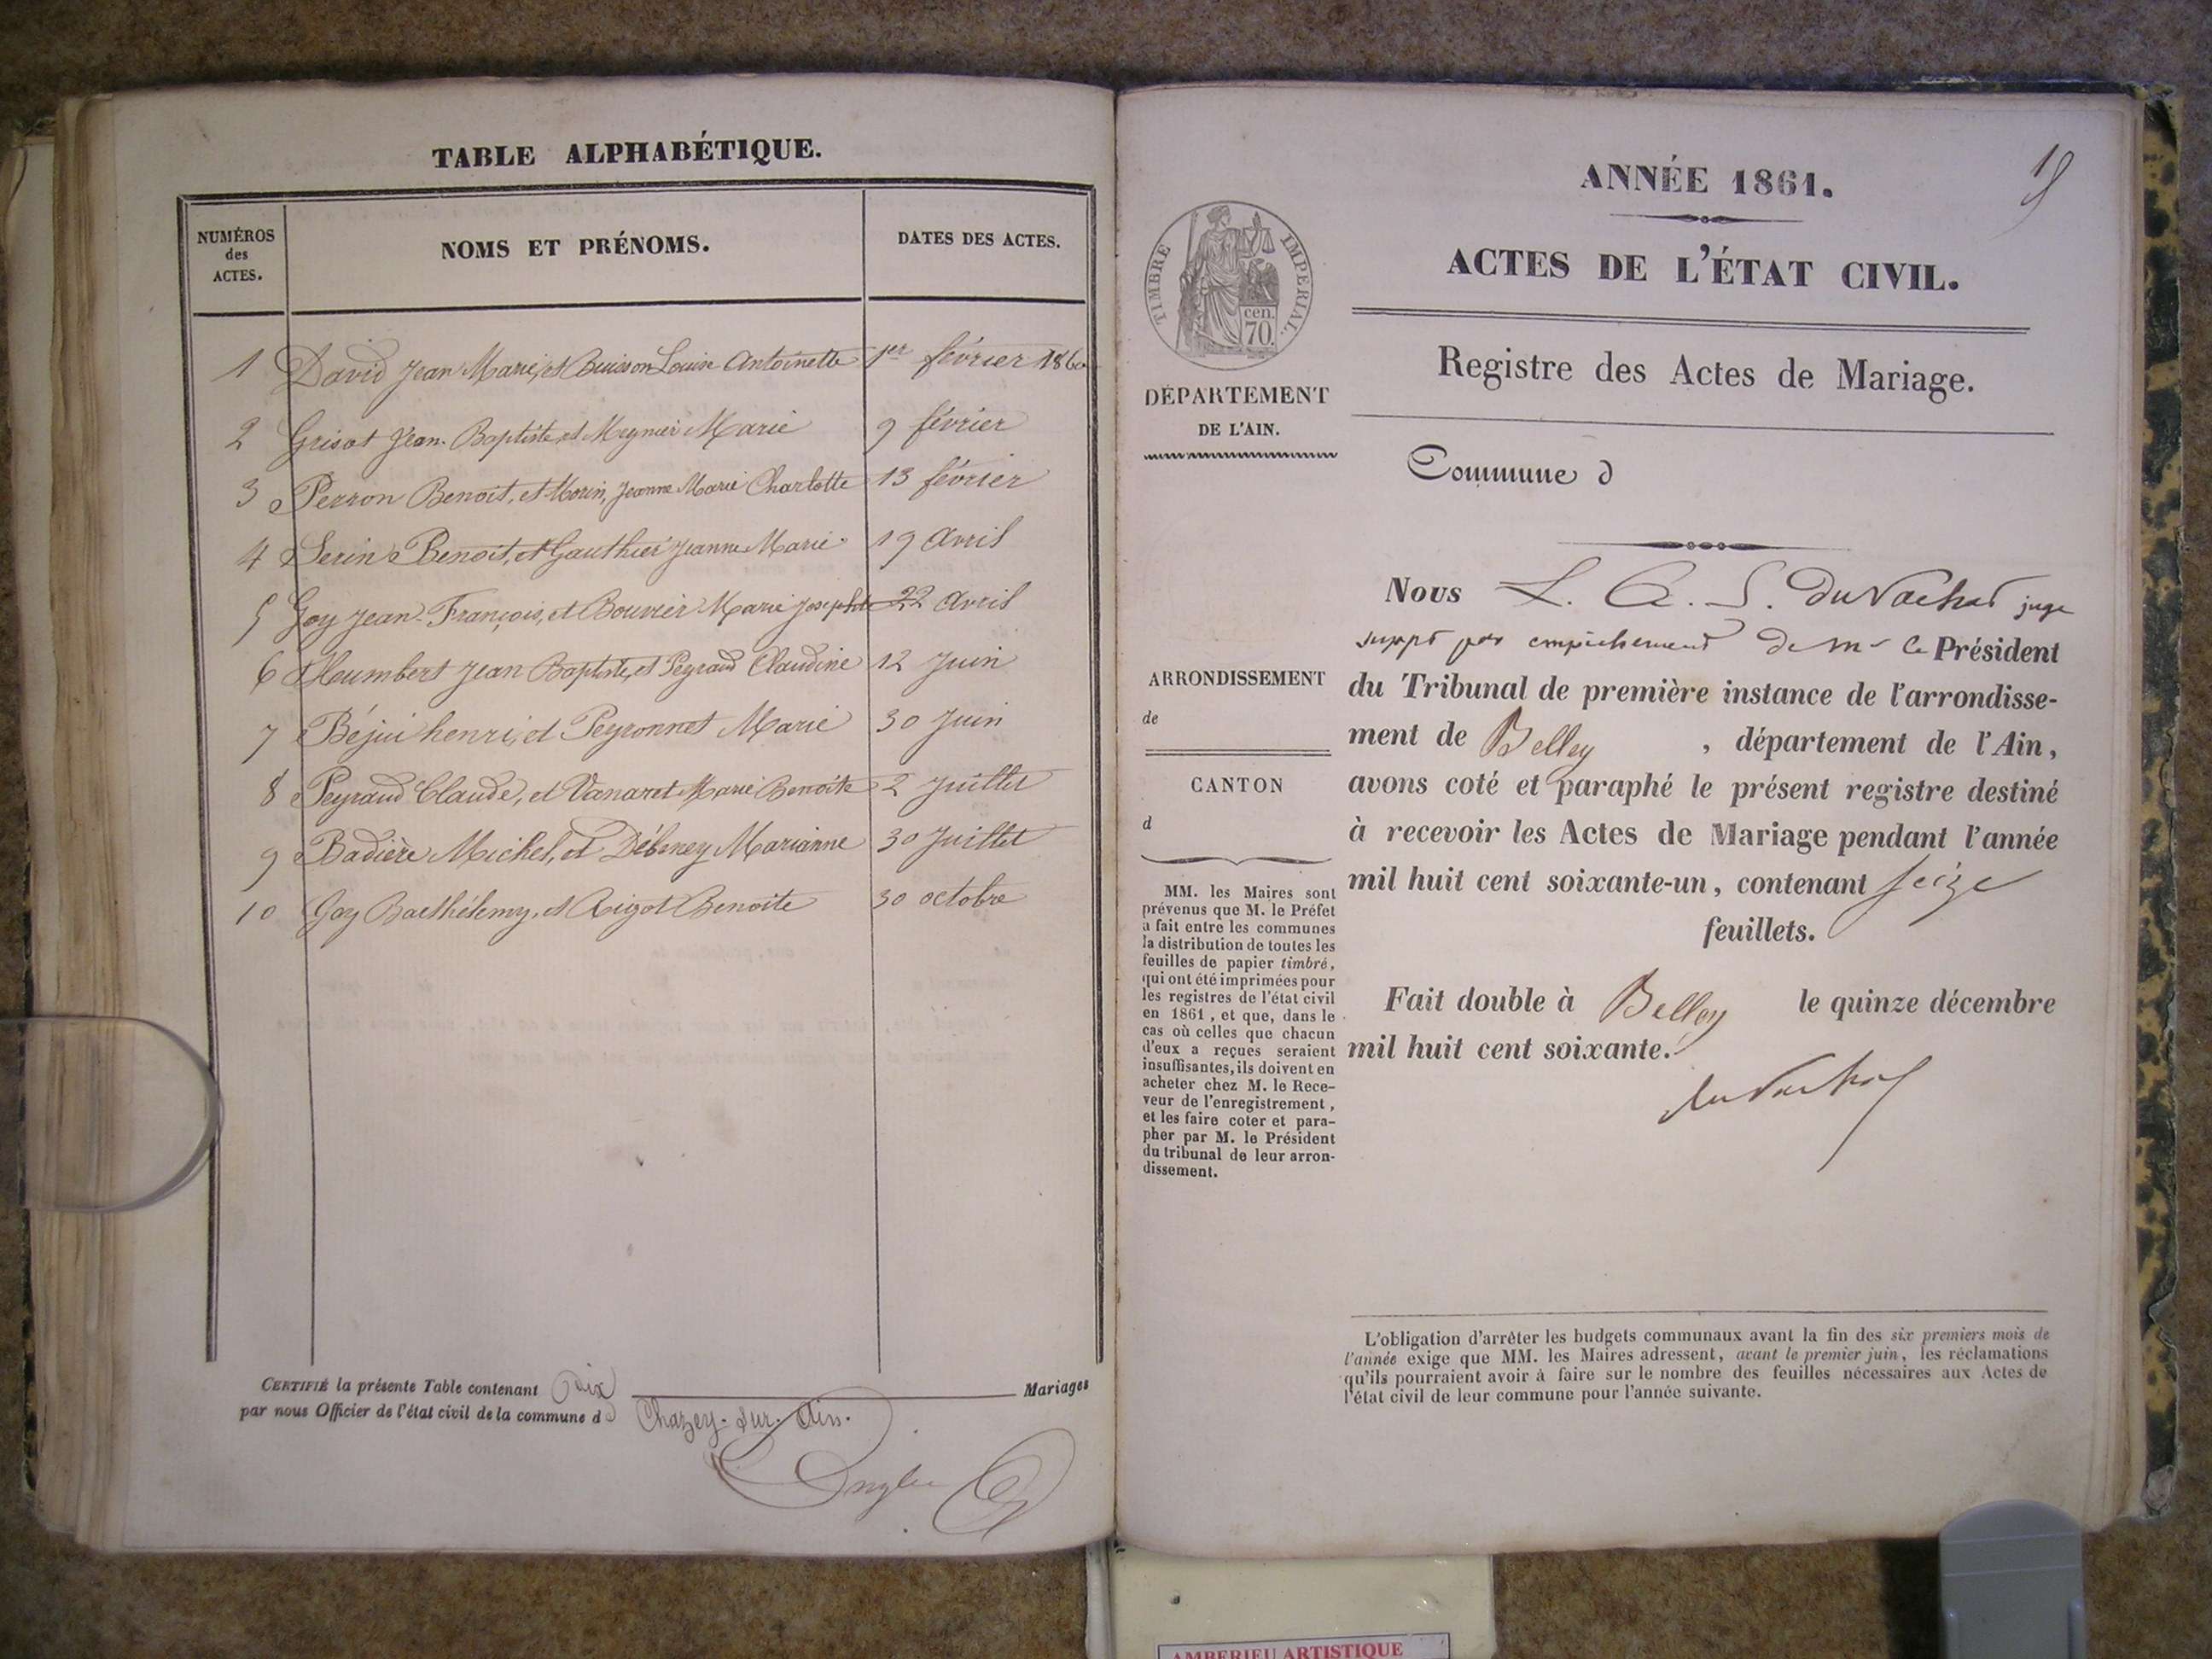 TABLE ALPHABÉTIQUE.
NUMÉROS des ACTES.
NOMS ET PRÉNOMS.
DATES DES ACTES.
1 David Jean Marie, et Buisson Louise Antoinette 1er février 1860
2 Grisot Jean-Baptiste, et Meynier Marie 9 février
3 Perron Benoit, et Morin, Jeanne Marie Charlotte 13 février
4 Serin Benoit, et Gauthier Jeanne Marie 19 Avril
5 Goy Jean-François, et Bouvier Marie Josephte 22 Avril
6 Humbert Jean Baptiste, et Peyraud Claudine 12 Juin
7 Béjui henri, et Peyronnet Marie 30 Juin
8 Peyraud Claude, et Vanaret Marie Benoite 2 Juillet
9 Badière Michel, et Débeney Marianne 30 Juillet
10 Goy Barthélemy, et Rigot Benoite 30 octobre
CERTIFIÉ la présente Table contenant dix Mariages
par nous Officier de l'état civil de la commune de Chazey-sur-Ain.
ANNÉE 1861.
TIMBRE IMPÉRIAL.
cen.
70.
ACTES DE L'ÉTAT CIVIL.
Registre des Actes de Mariage.
DÉPARTEMENT
DE L'AIN.
Commune d
ARRONDISSEMENT
de
CANTON
d
MM. les Maires sont
prévenus que M. le Préfet
a fait entre les communes
la distribution de toutes les
feuilles de papier timbré,
qui ont été imprimées pour
les registres de l'état civil
en 1861, et que, dans le
cas où celles que chacun
d'eux a reçues seraient
insuffisantes, ils doivent en
acheter chez M. le Rece-
veur de l'enregistrement,
et les faire coter et para-
pher par M. le Président
du tribunal de leur arron-
dissement.
Nous L. A. S. du Vachat juge
suppt par empêchement de mr le Président
du Tribunal de première instance de l'arrondisse-
ment de Belley, département de l'Ain,
avons coté et paraphé le présent registre destiné
à recevoir les Actes de Mariage pendant l'année
mil huit cent soixante-un, contenant seize
feuillets.
Fait double à Belley le quinze décembre
mil huit cent soixante.
du Vachat
L'obligation d'arrêter les budgets communaux avant la fin des six premiers mois de
l'année exige que MM. les Maires adressent, avant le premier juin, les réclamations
qu'ils pourraient avoir à faire sur le nombre des feuilles nécessaires aux Actes de
l'état civil de leur commune pour l'année suivante.
AMBERIEU ARTISTIQUE